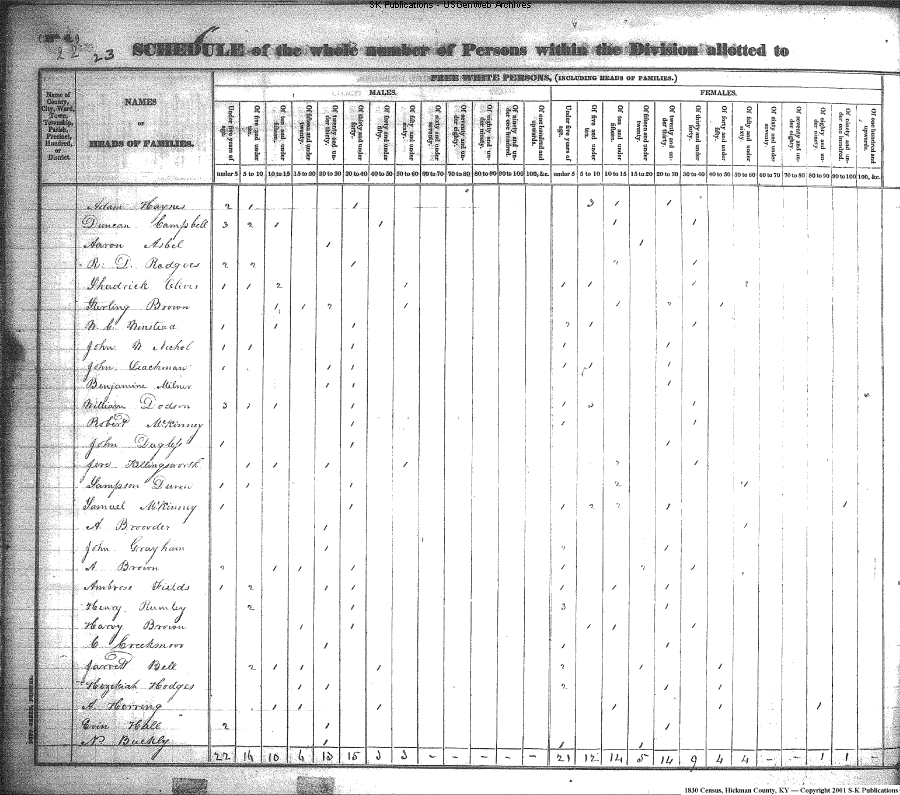 SK Publications - USGenWeb Archives
22 23 SCHEDULE of the whole number of Persons within the Division allotted to
FREE WHITE PERSONS, (INCLUDING HEADS OF FAMILIES.)
Name of County, City, Ward, Town, Township, Parish, Precinct, Hundred, or District
NAMES OF HEADS OF FAMILIES.
MALES. FEMALES.
Under five years of age. Of five and under ten. Of ten and under fifteen. Of fifteen and under twenty. Of twenty and under thirty. Of thirty and under forty. Of forty and under fifty. Of fifty and under sixty. Of sixty and under seventy. Of seventy and under eighty. Of eighty and under ninety. Of ninety and under one hundred. Of one hundred and upwards.
Under five years of age. Of five and under ten. Of ten and under fifteen. Of fifteen and under twenty. Of twenty and under thirty. Of thirty and under forty. Of forty and under fifty. Of fifty and under sixty. Of sixty and under seventy. Of seventy and under eighty. Of eighty and under ninety. Of ninety and under one hundred. Of one hundred and upwards.
under 5 5 to 10 10 to 15 15 to 20 20 to 30 30 to 40 40 to 50 50 to 60 60 to 70 70 to 80 80 to 90 90 to 100 100, &c. under 5 5 to 10 10 to 15 15 to 20 20 to 30 30 to 40 40 to 50 50 to 60 60 to 70 70 to 80 80 to 90 90 to 100 100, &c.
Adam Haynes 2 1 1 3 1 1
Duncan Campbell 3 2 1 1 1 1
Aaron Asbel 1 1
R. D. Rodgers 2 2 1 1
Shadrick 1 1 2 1 1 1 1 2
Sterling Brown 1 1 2 1 1 2 1
W. C. Winstead 1 1 1 2 1 1
John W Nichol 1 1 1 1 1
John Leachman 1 1 1 1 1 1
Benjamine Milner 1 1 1
William Dodson 3 1 1 1 1 3 1
Robert McKinney 1 1 1
John 1 1 1
Jere Killingsworth 1 1 1 1 1
Sampson 1 1 1 2 1
Samuel McKinny 1 1 1 2 1 1
A. Browder 1 1
John Grayham 1 1
A Brown 1 1 1 1 1
Ambrose Fields 1 2 1 1 1 1 1
Henry Rumley 2 1 3 1
Harvy Brown 1 1 1 1 1
C. Creekmoor 1 1 1
Jarrett Bell 2 1 1 1 2 1 1
Hezekiah Hodges 1 1 2 1 1
A Herring 1 1 1 1 1 1
Evin Hall 2 1 1
N Buckly 1 1 1
22 16 10 6 13 15 3 3 - - - - - 21 12 14 5 14 9 4 4 - - 1 1 -
1830 Census, Hickman County, KY — Copyright 2001 S-K Publications